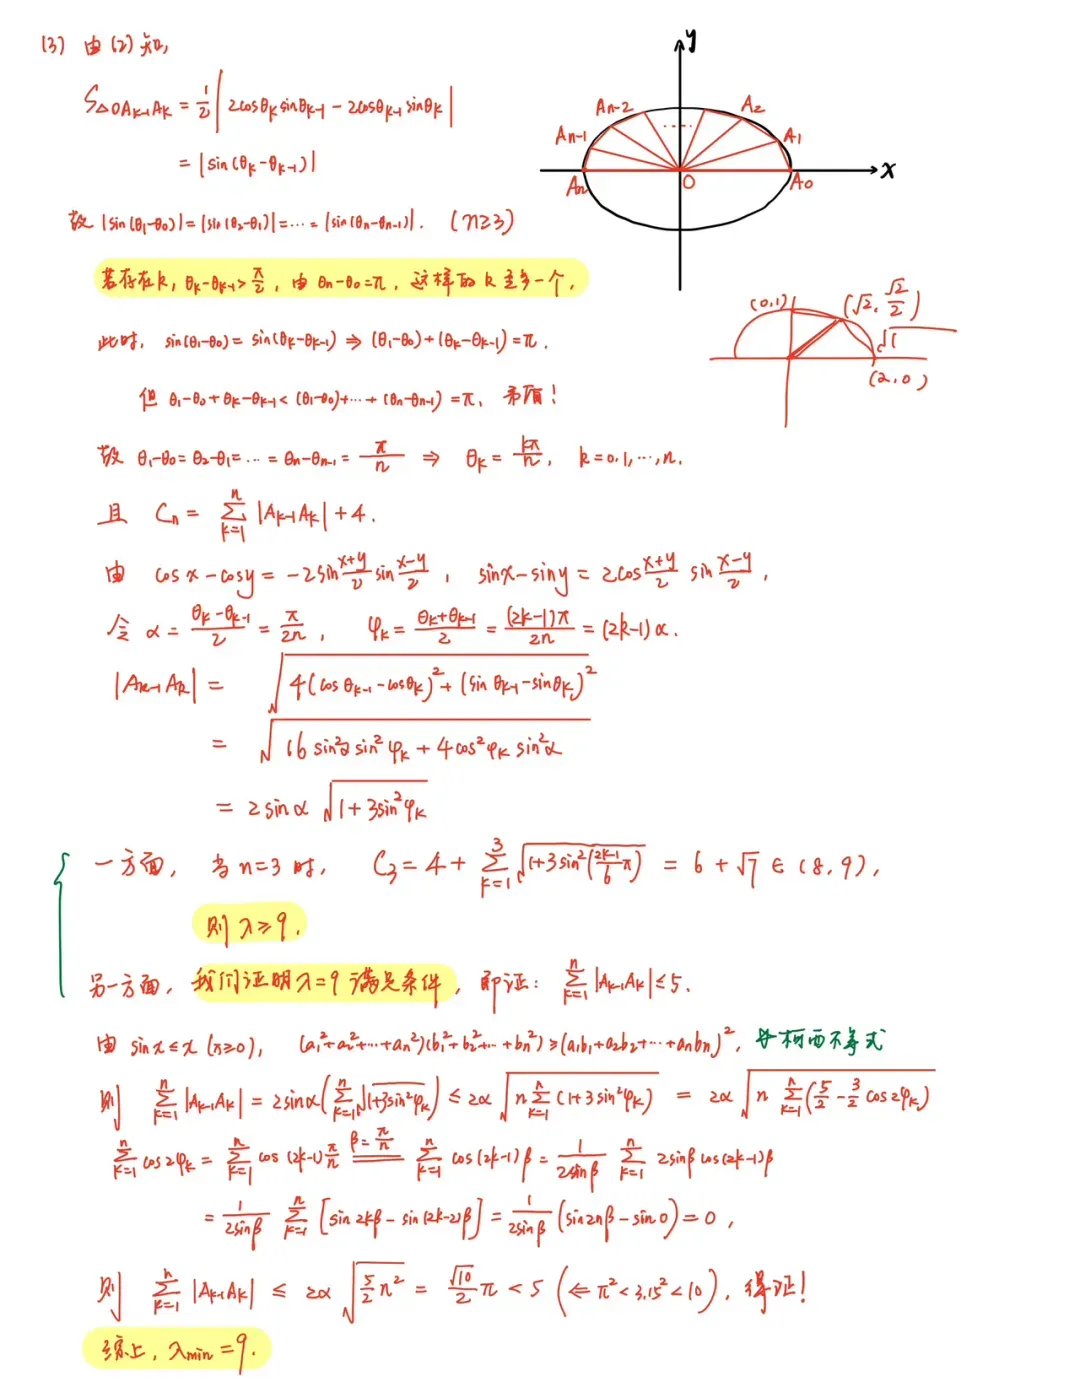 (3) 由(2)知,
S△OAk-1Ak = 1/2 |2cosθk sinθk-1 - 2cosθk-1 sinθk|
= |sin(θk-θk-1)|
故 |sin(θ1-θ0)| = |sin(θ2-θ1)| = ... = |sin(θn-θn-1)|. (n≥3)
若存在k, θk-θk-1 > π/2, 由 θn-θ0=π, 这样的k至多一个.
此时, sin(θ1-θ0) = sin(θk-θk-1) ⇒ (θ1-θ0)+(θk-θk-1)=π.
但 θ1-θ0+θk-θk-1 < (θ1-θ0)+...+(θn-θn-1)=π, 矛盾!
故 θ1-θ0=θ2-θ1=...=θn-θn-1=π/n ⇒ θk=kπ/n, k=0,1,...,n.
且 Cn = ∑(k=1→n) |Ak-1Ak| + 4.
由 cosx-cosy = -2sin (x+y)/2 sin (x-y)/2, sinx-siny = 2cos (x+y)/2 sin (x-y)/2,
令 α = (θk-θk-1)/2 = π/2n, φk = (θk+θk-1)/2 = (2k-1)π/2n = (2k-1)α.
|Ak-1Ak| = √(4(cosθk-1-cosθk)²+(sinθk-1-sinθk)²)
= √(16sin²α sin²φk+4cos²φk sin²α)
= 2sinα √(1+3sin²φk)
一方面, 当n=3时, C3=4+∑(k=1→3) √(1+3sin²((2k-1)/6 π)) = 6+√7 ∈ (8,9),
则 λ≥9.
另一方面, 我们证明λ=9满足条件, 即证: ∑(k=1→n) |Ak-1Ak| ≤ 5.
由 sinx≤x (x≥0), (a1²+a2²+...+an²)(b1²+b2²+...+bn²) ≥ (a1b1+a2b2+...+anbn)², 柯西不等式
则 ∑(k=1→n) |Ak-1Ak| = 2sinα(∑(k=1→n) √(1+3sin²φk)) ≤ 2α √(n∑(k=1→n) (1+3sin²φk)) = 2α √(n∑(k=1→n) (5/2 - 3/2 cos2φk))
∑(k=1→n) cos2φk = ∑(k=1→n) cos(2k-1)π/n =(β=π/n)= ∑(k=1→n) cos(2k-1)β = 1/(2sinβ) ∑(k=1→n) 2sinβcos(2k-1)β
= 1/(2sinβ) ∑(k=1→n) [sin2kβ-sin(2k-2)β] = 1/(2sinβ) (sin2nβ-sin0) = 0,
则 ∑(k=1→n) |Ak-1Ak| ≤ 2α √(5/2 n²) = √10/2 π < 5 (⇐ π²<3.15²<10), 得证!
综上, λmin=9.
y
An-2
A2
An-1
A1
x
An
O
A0
(0,1)
(√2, √2/2)
(2,0)